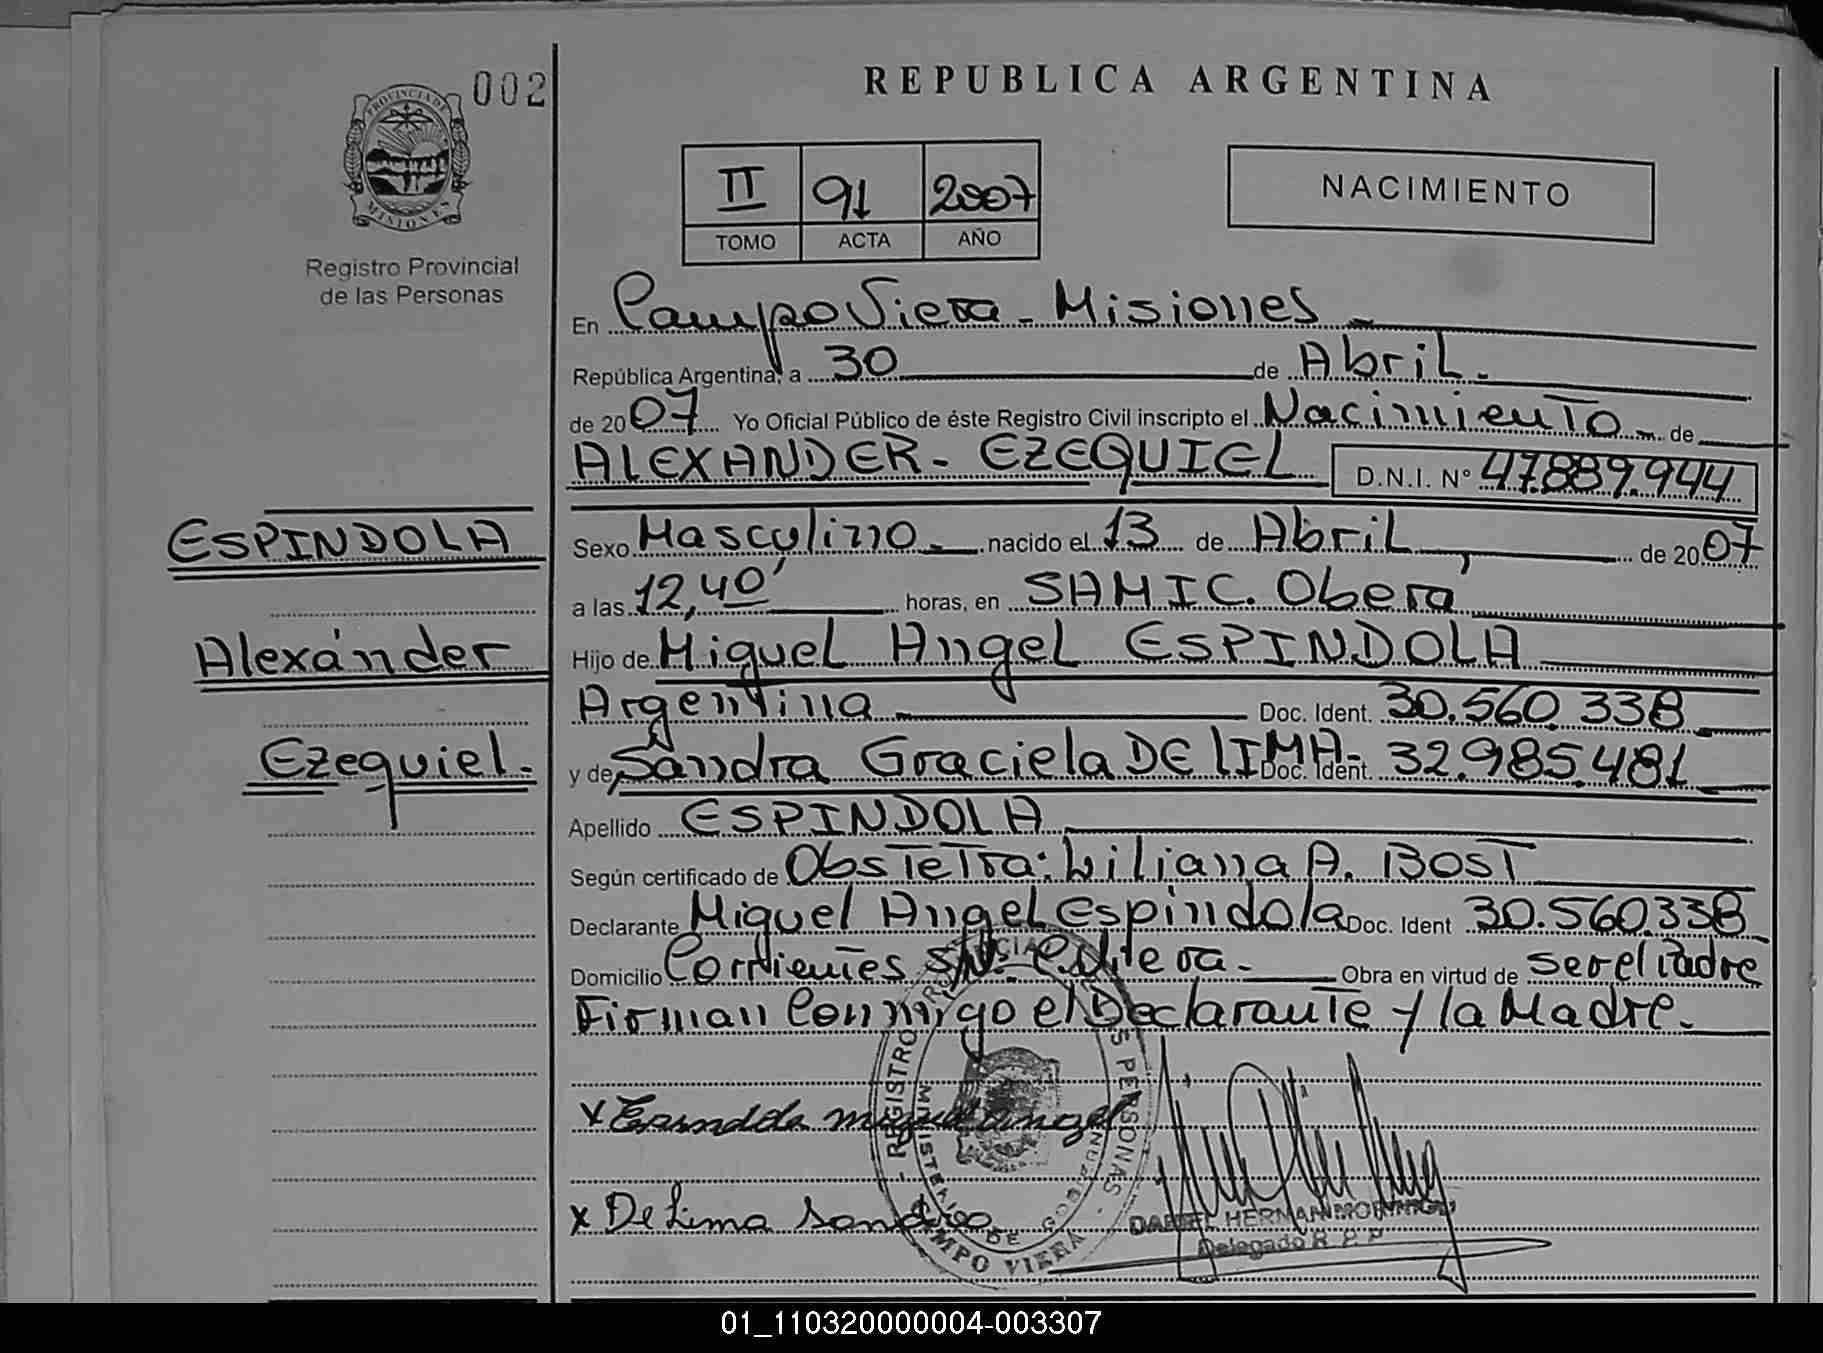 002
PROVINCIA DE
MISIONES
Registro Provincial
de las Personas
REPUBLICA ARGENTINA
II 91 2007
TOMO ACTA AÑO
NACIMIENTO
En Campo Viera - Misiones
República Argentina, a 30 de Abril.
de 2007 Yo Oficial Público de éste Registro Civil inscripto el Nacimiento de
ALEXANDER - EZEQUIEL D.N.I. Nº 47.889.944
ESPINDOLA
Alexánder
Ezequiel.-
Sexo Masculino nacido el 13 de Abril de 2007
a las 12,40' horas, en SAMIC. Oberá
Hijo de Miguel Angel ESPINDOLA
Argentina Doc. Ident. 30.560.338
y de Sandra Graciela DE LIMA - Doc. Ident. 32.985.481
Apellido ESPINDOLA
Según certificado de Obstetra: Liliana A. BOST
Declarante Miguel Angel Espindola Doc. Ident 30.560.338
Domicilio Corrientes S/N. C. Viera. - Obra en virtud de ser el Padre
Firman Conmigo el Declarante y la Madre.
x Espindola miguel angel
x De Lima Sandra
REGISTRO PROVINCIAL DE LAS PERSONAS
MINISTERIO DE GOBIERNO
CAMPO VIERA
DANIEL HERNAN
Delegado R. P. P.
01_110320000004-003307